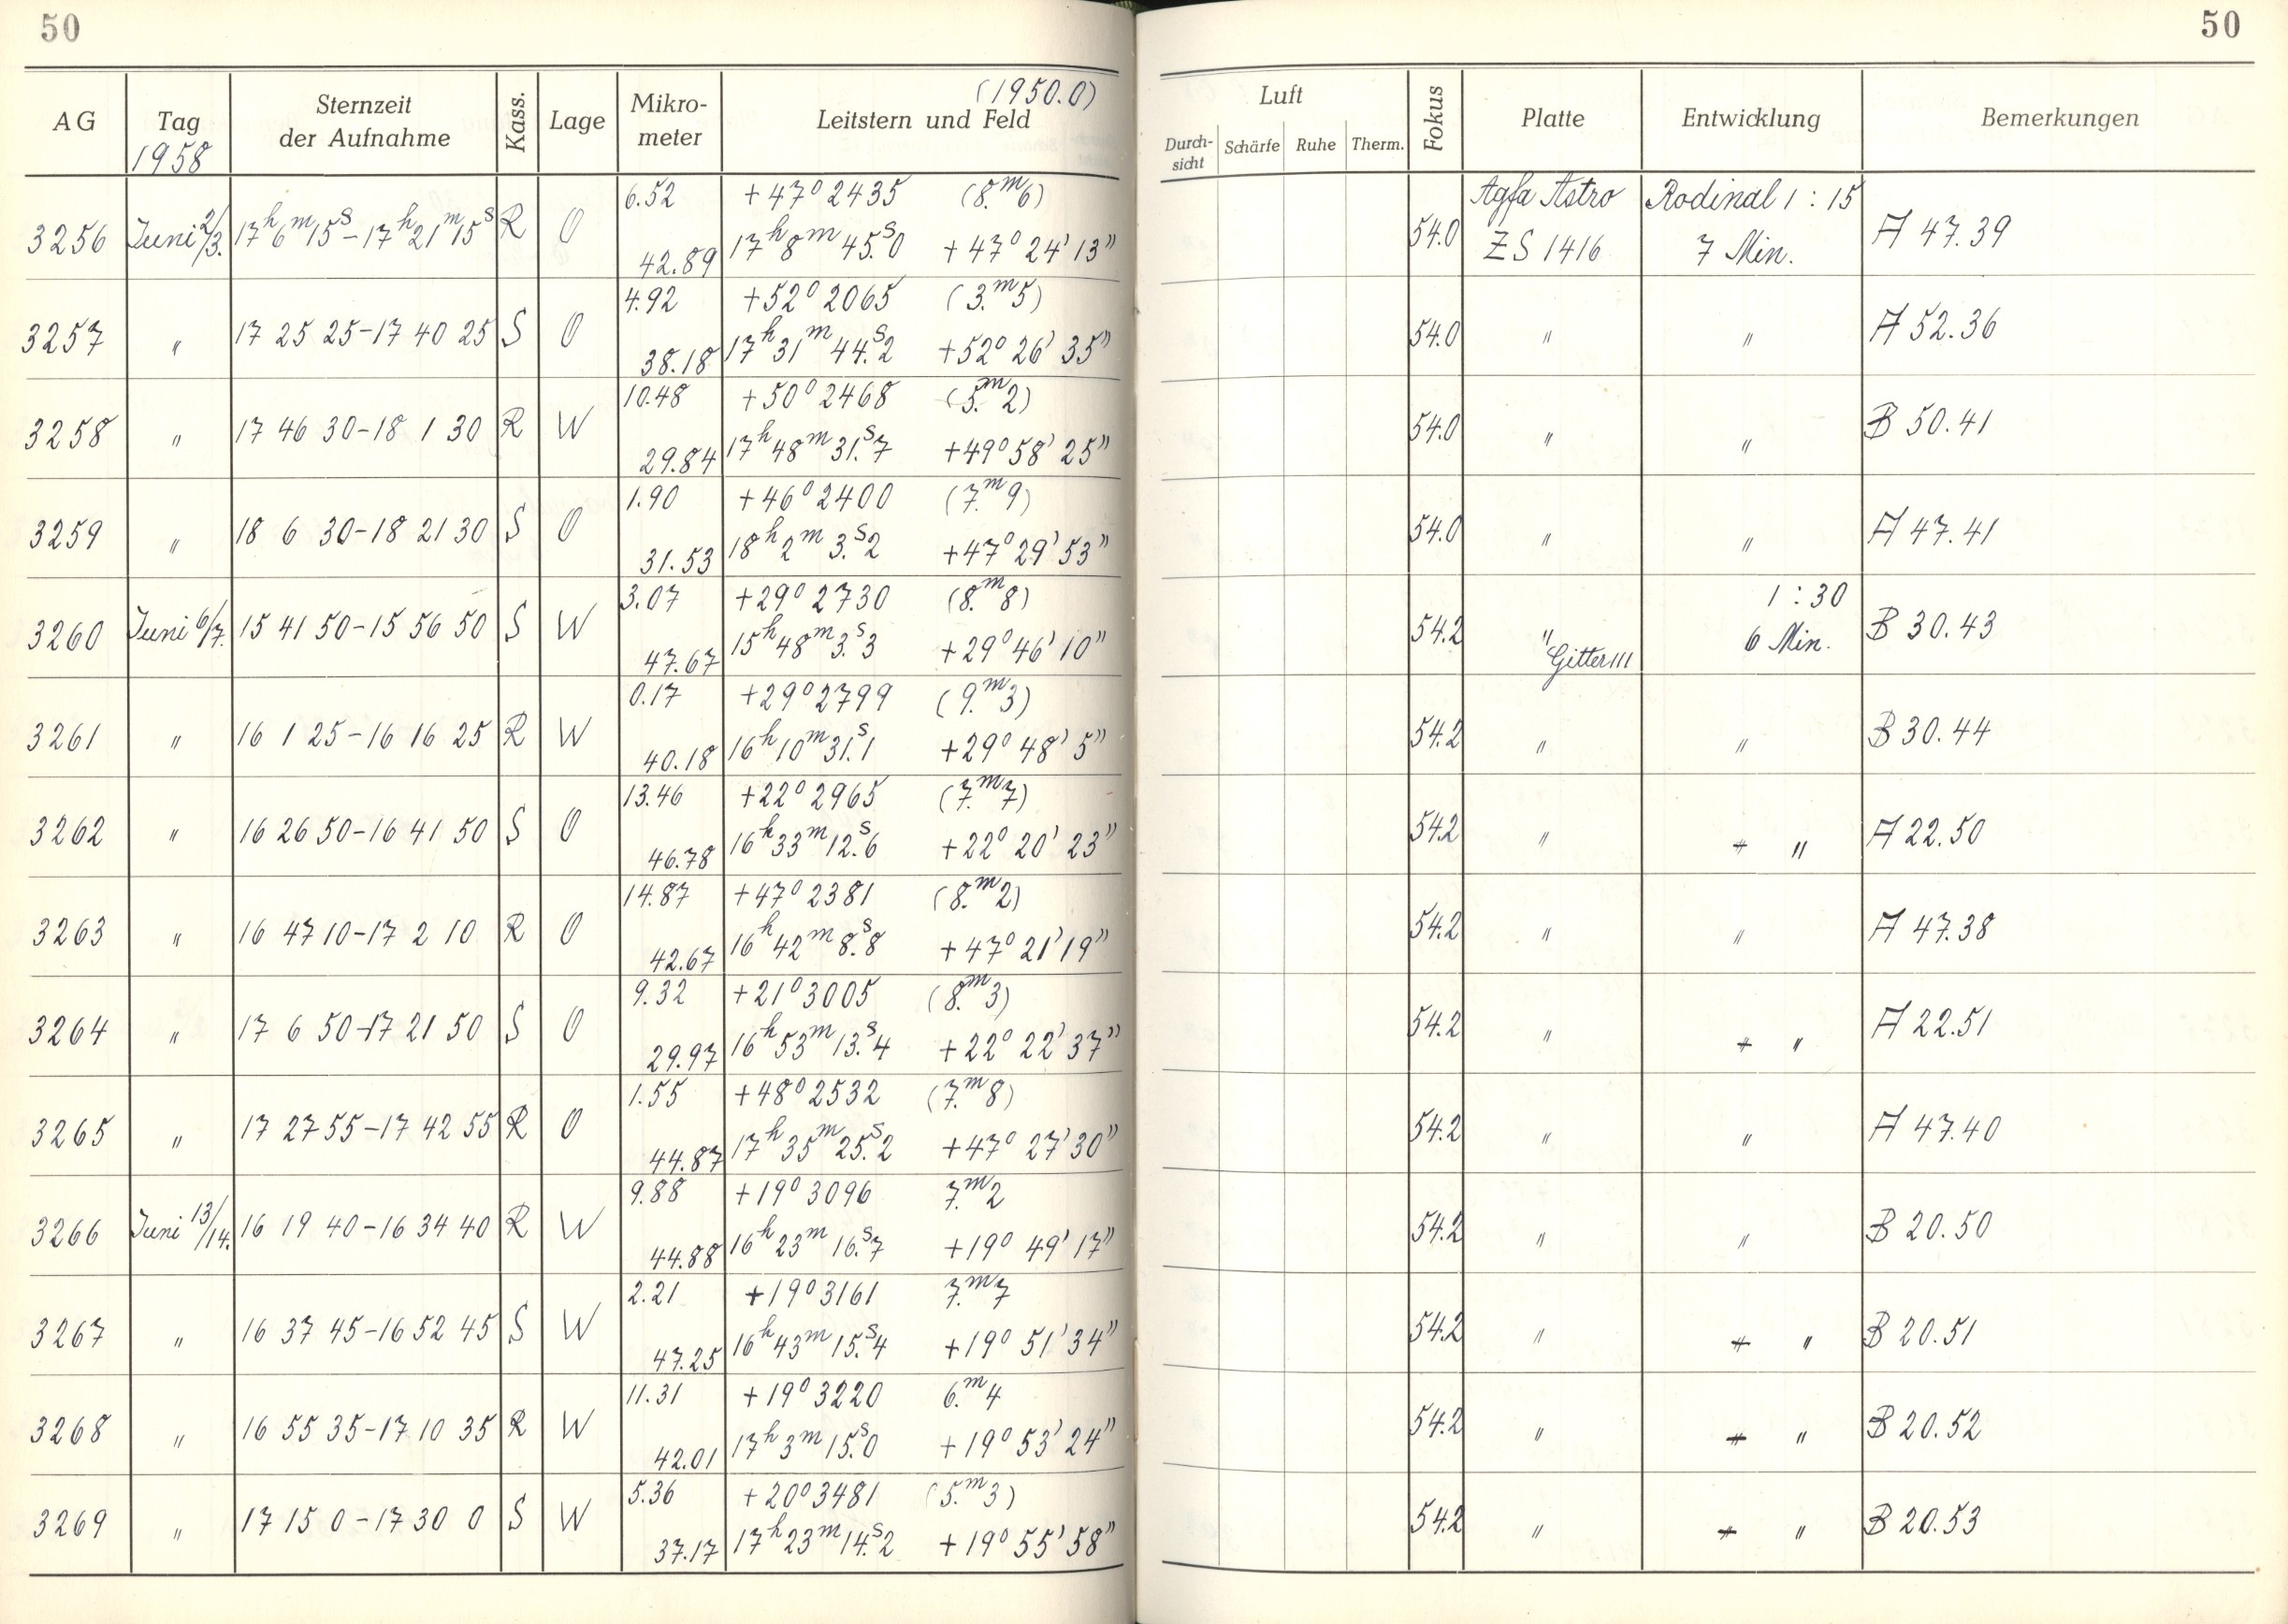 50
50
(1950.0)
AG Tag Sternzeit der Aufnahme Kass. Lage Mikro-meter Leitstern und Feld Luft Durch-sicht Schärfe Ruhe Therm. Fokus Platte Entwicklung Bemerkungen
1958
6.52 +47° 2435 (8.ᵐ6) Agfa Astro Rodinal 1:15
3256 Juni 2/3. 17ʰ6ᵐ15ˢ-17ʰ21ᵐ15ˢ R O 42.89 17ʰ8ᵐ45.ˢ0 +47° 24' 13" 54.0 ZS 1416 7 Min. A 47.39
4.92 +52° 2065 (3.ᵐ5)
3257 " 17 25 25-17 40 25 S O 38.18 17ʰ31ᵐ44.ˢ2 +52° 26' 35" 54.0 " " A 52.36
10.48 +50° 2468 (5.ᵐ2)
3258 " 17 46 30-18 1 30 R W 29.84 17ʰ48ᵐ31.ˢ7 +49° 58' 25" 54.0 " " B 50.41
1.90 +46° 2400 (7.ᵐ9)
3259 " 18 6 30-18 21 30 S O 31.53 18ʰ2ᵐ3.ˢ2 +47° 29' 53" 54.0 " " A 47.41
3.07 +29° 2730 (8.ᵐ8) 1:30
3260 Juni 6/7. 15 41 50-15 56 50 S W 47.67 15ʰ48ᵐ3.ˢ3 +29° 46' 10" 54.2 " Gitter III 6 Min. B 30.43
0.17 +29° 2799 (9.ᵐ3)
3261 " 16 1 25-16 16 25 R W 40.18 16ʰ10ᵐ31.ˢ1 +29° 48' 5" 54.2 " " B 30.44
13.46 +22° 2965 (7.ᵐ7)
3262 " 16 26 50-16 41 50 S O 46.78 16ʰ33ᵐ12.ˢ6 +22° 20' 23" 54.2 " + " A 22.50
14.87 +47° 2381 (8.ᵐ2)
3263 " 16 47 10-17 2 10 R O 42.67 16ʰ42ᵐ8.ˢ8 +47° 21' 19" 54.2 " " A 47.38
9.32 +21° 3005 (8.ᵐ3)
3264 " 17 6 50-17 21 50 S O 29.97 16ʰ53ᵐ13.ˢ4 +22° 22' 37" 54.2 " + " A 22.51
1.55 +48° 2532 (7.ᵐ8)
3265 " 17 27 55-17 42 55 R O 44.87 17ʰ35ᵐ25.ˢ2 +47° 27' 30" 54.2 " " A 47.40
9.88 +19° 3096 7.ᵐ2
3266 Juni 13/14. 16 19 40-16 34 40 R W 44.88 16ʰ23ᵐ16.ˢ7 +19° 49' 17" 54.2 " " B 20.50
2.21 +19° 3161 7.ᵐ7
3267 " 16 37 45-16 52 45 S W 47.25 16ʰ43ᵐ15.ˢ4 +19° 51' 34" 54.2 " + " B 20.51
11.31 +19° 3220 6.ᵐ4
3268 " 16 55 35-17 10 35 R W 42.01 17ʰ3ᵐ15.ˢ0 +19° 53' 24" 54.2 " + " B 20.52
5.36 +20° 3481 (5.ᵐ3)
3269 " 17 15 0-17 30 0 S W 37.17 17ʰ23ᵐ14.ˢ2 +19° 55' 58" 54.2 " + " B 20.53